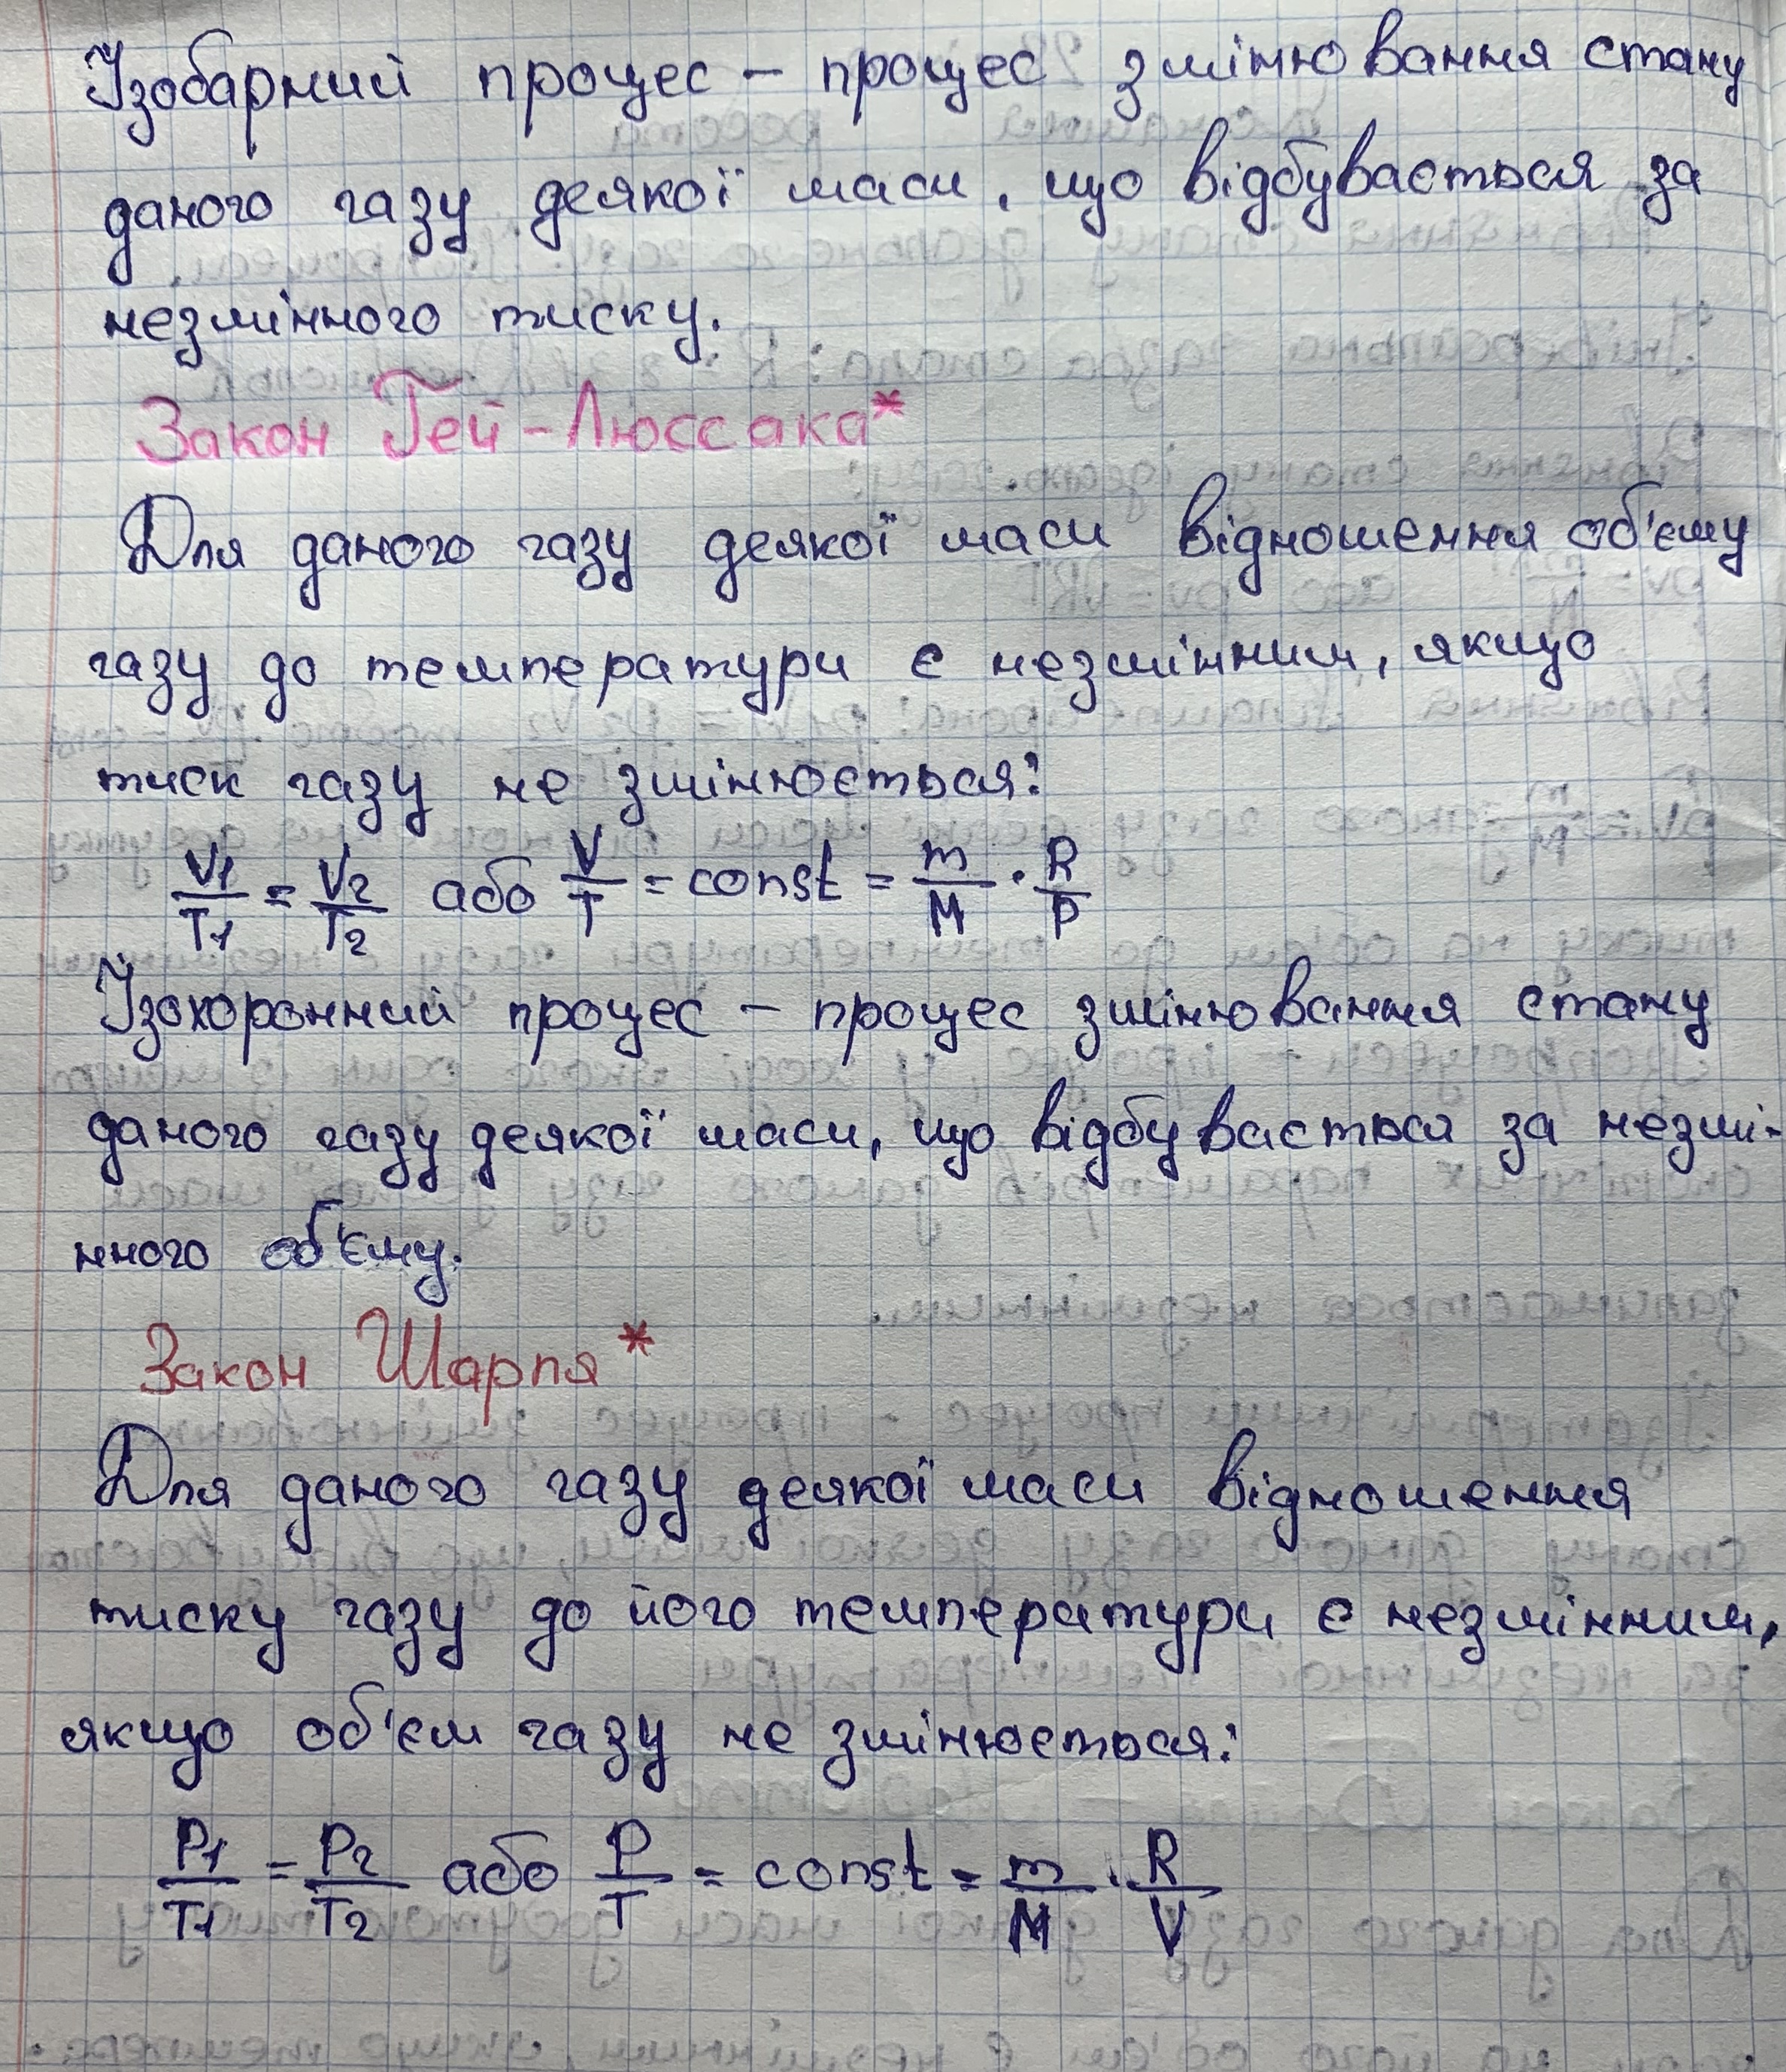 Ізобарний процес – процес змінювання стану
даного газу деякої маси, що відбувається за
незмінного тиску.
Закон Гей-Люссака*
Для даного газу деякої маси відношення об'єму
газу до температури є незмінним, якщо
тиск газу не змінюється:
V1/T1 = V2/T2 або V/T = const = m/M · R/P
Ізохоронний процес – процес змінювання стану
даного газу деякої маси, що відбувається за незмі-
нного об'єму.
Закон Шарля*
Для даного газу деякої маси відношення
тиску газу до його температури є незмінним,
якщо об'єм газу не змінюється:
P1/T1 = P2/T2 або P/T = const = m/M · R/V